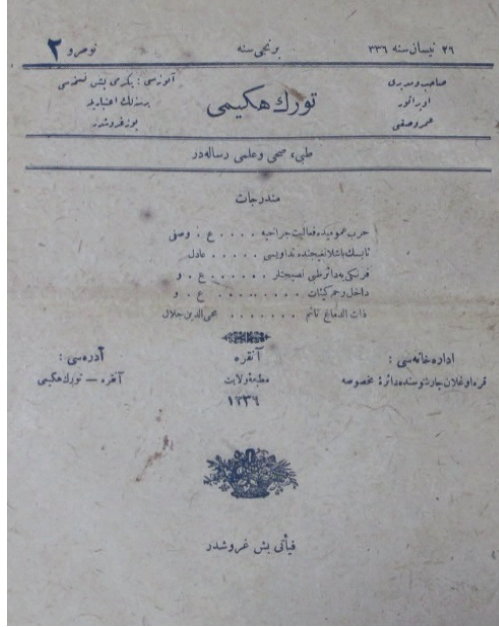 ٢٦ نیسان سنه ٣٣٦
برنجی سنه
نومرو ٢
صاحب ومدیری
اوپراتور
عمر وصفی
تورك هکیمی
آبونه‌سی : یکرمی بش نسخه‌سی
برسنه‌لك اعتباریله
یوز غروشدر
طبی، صحی وعلمی رساله‌در
مندرجات
حرب عمومیده فعالیت جراحیه . . . . ع . وصفی
تداویسی . . . . . عادل
فرنکی‌یه دائر طبی نصیحتلر . . . . . . . ع . و
داخل رحم . . . . . . . . ع . و
ذات الدماغ نائم . . . . . . . محی‌الدین جلال
اداره‌خانه‌سی :
قره‌اوغلان چارشوسنده دائرۀ مخصوصه
آنقره
مطبعۀ ولایت
١٣٣٦
آدره‌سی :
آنقره — تورك هکیمی
فیأتی بش غروشدر